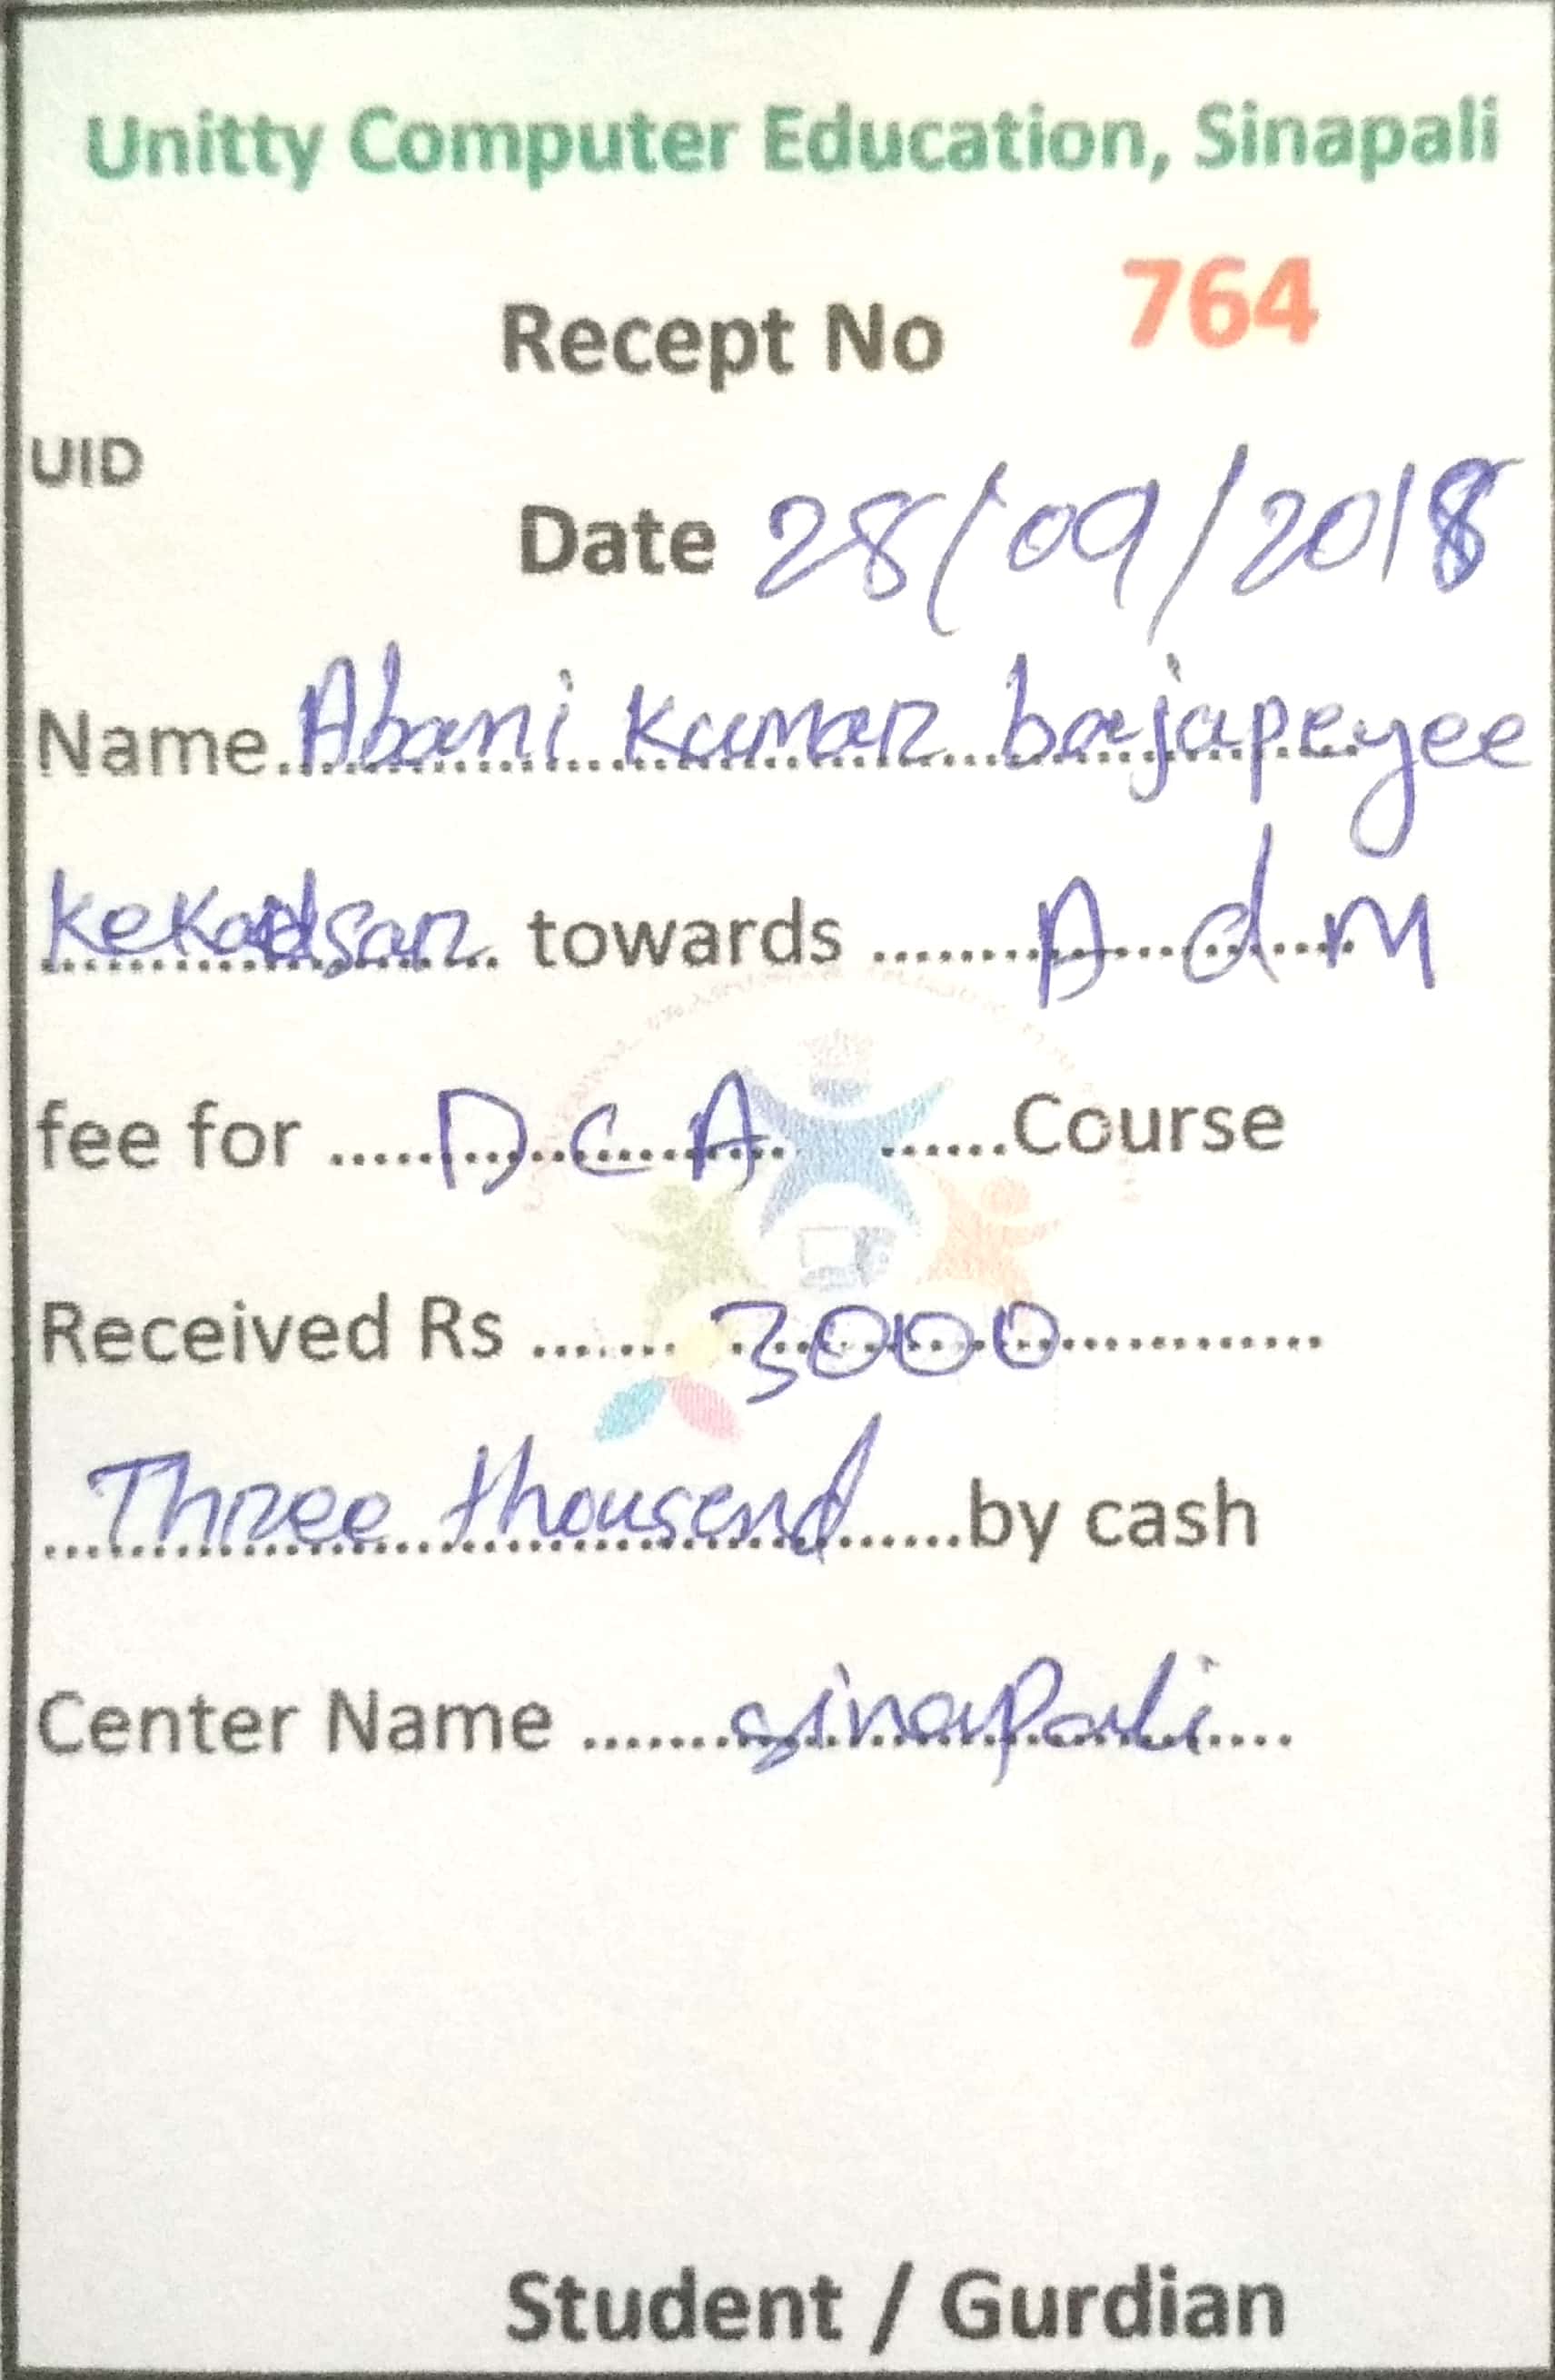 Unitty Computer Education, Sinapali
Recept No 764
UID
Date 28/09/2018
Name Abani Kumar bajapeyee
towards A d M
fee for D C A Course
Received Rs 3000
Three thousend by cash
Center Name sinapali
Student / Gurdian